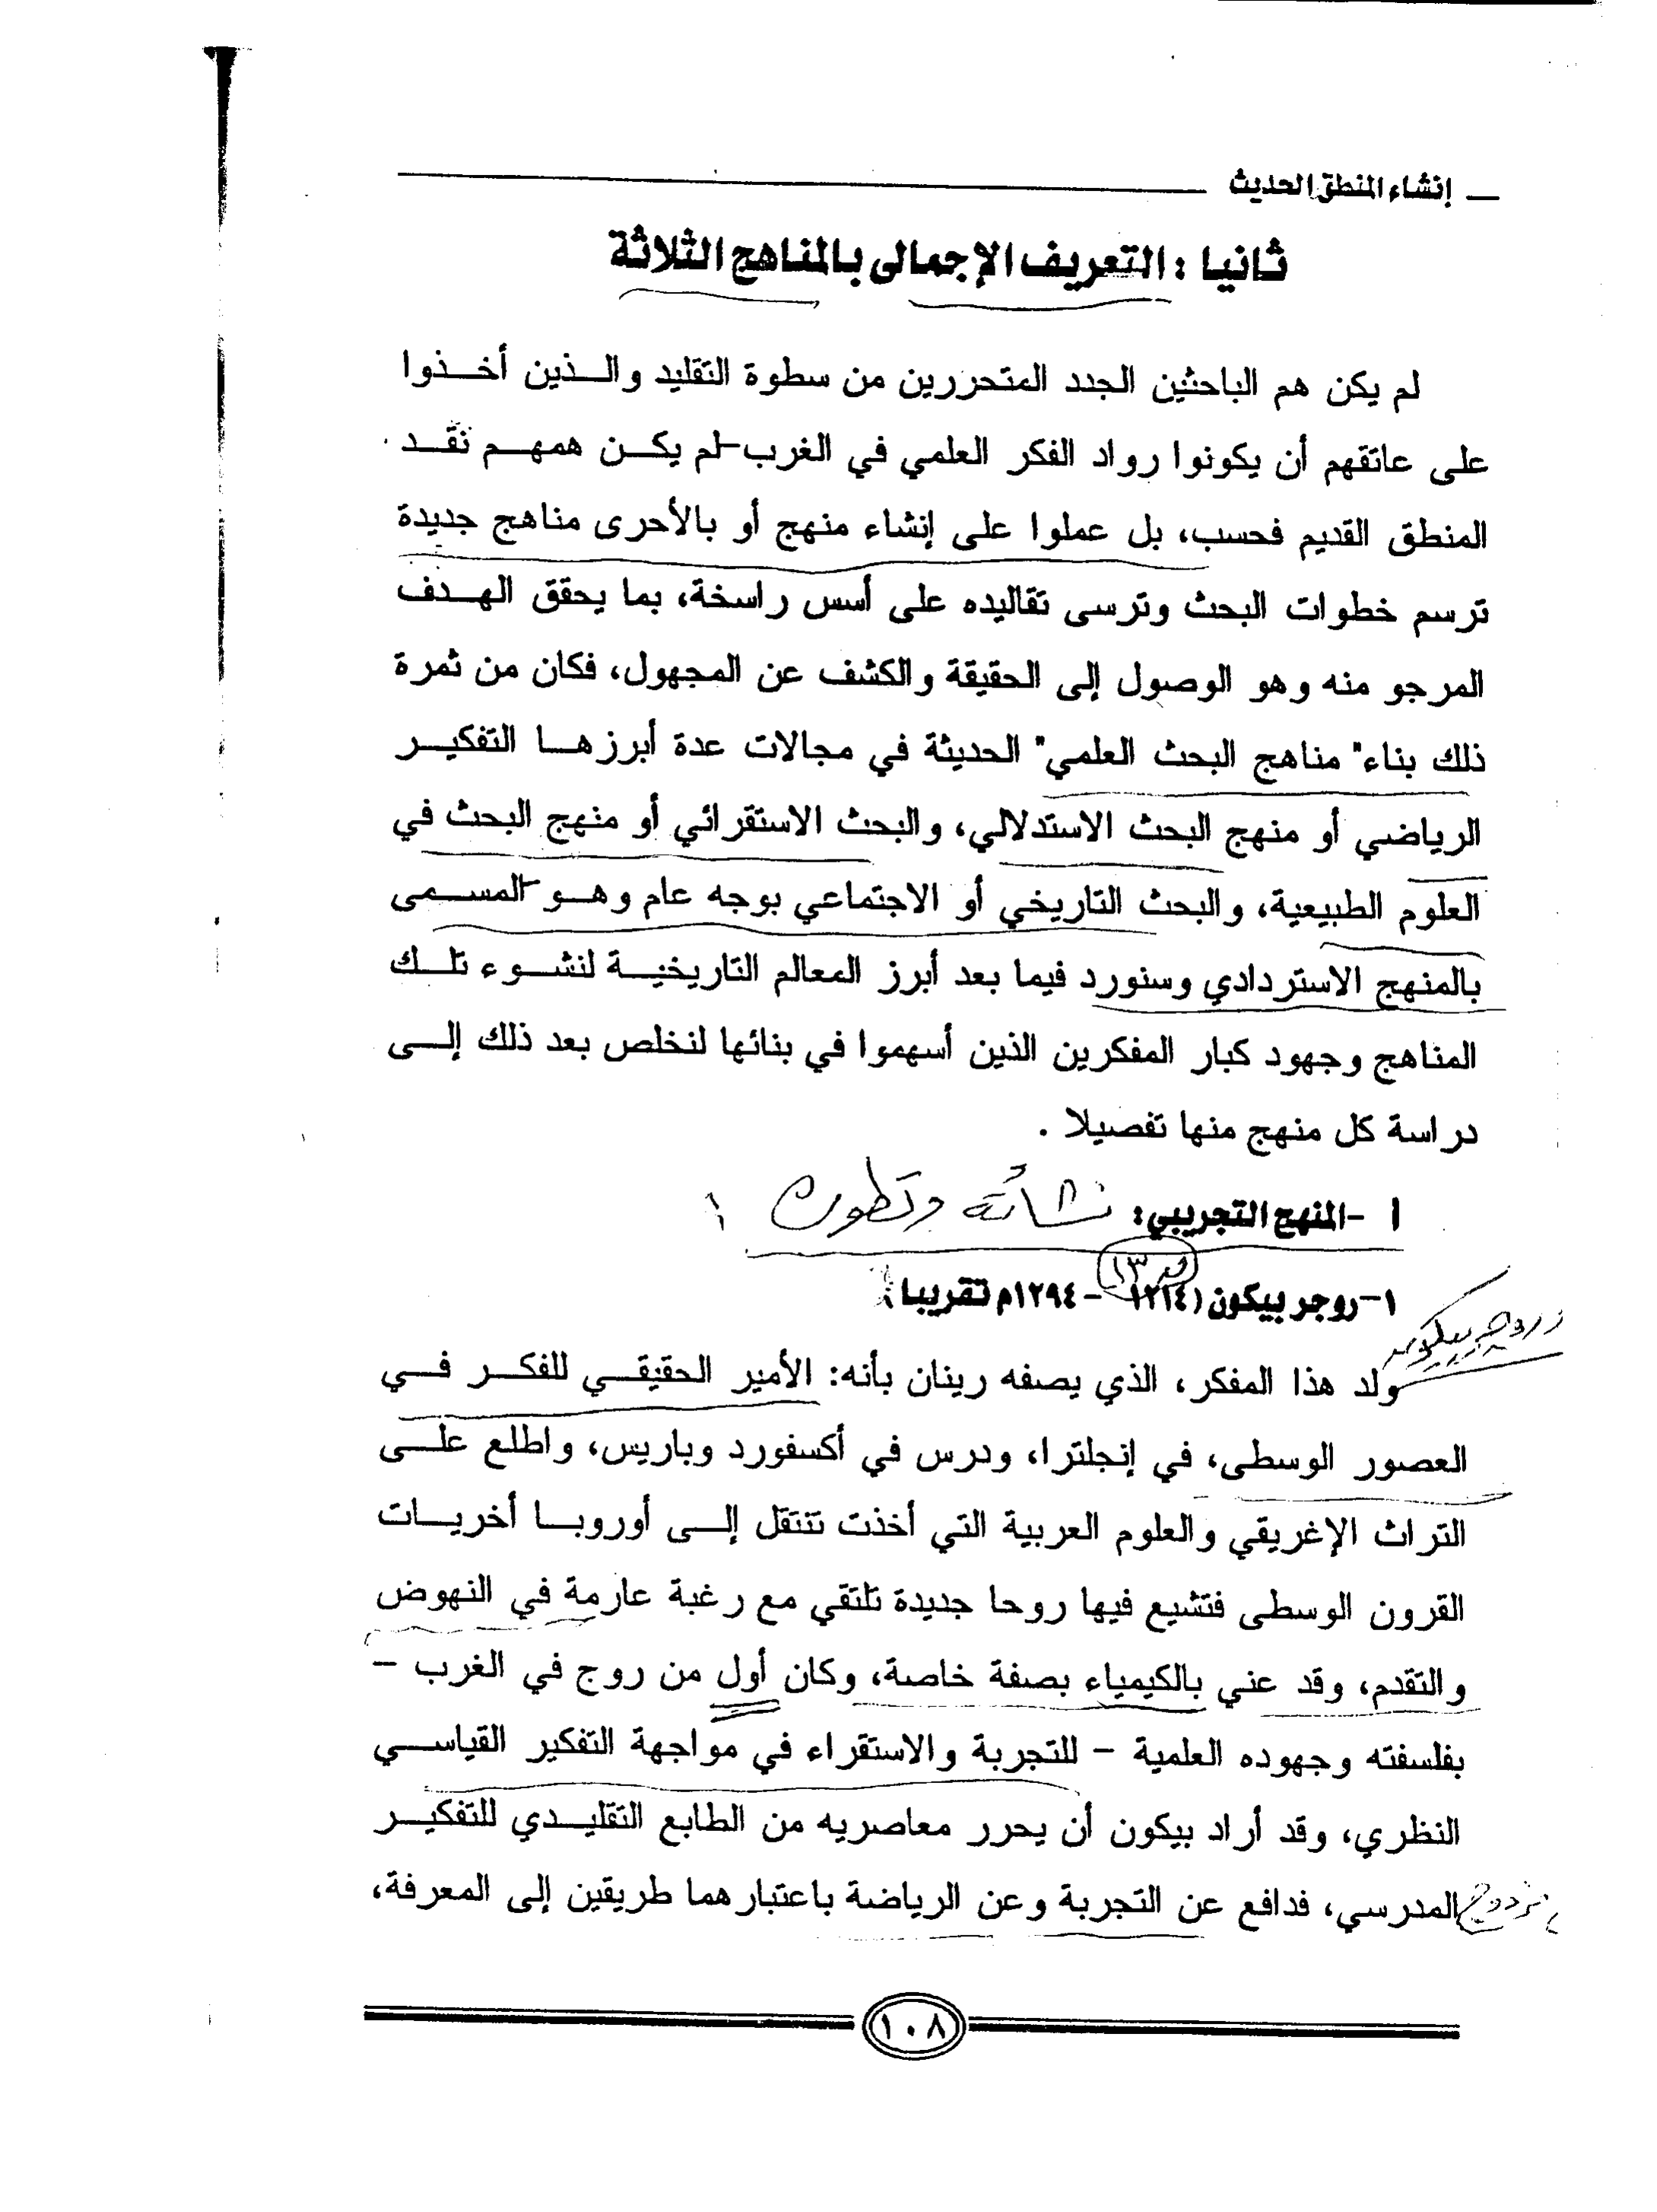 إنشاء المنطق الحديث
ثانيا : التعريف الإجمالى بالمناهج الثلاثة
لم يكن هم الباحثين الجدد المتحررين من سطوة التقليد والذين أخذوا
على عاتقهم أن يكونوا رواد الفكر العلمي في الغرب-لم يكن همهم نقد
المنطق القديم فحسب، بل عملوا على إنشاء منهج أو بالأحرى مناهج جديدة
ترسم خطوات البحث وترسى تقاليده على أسس راسخة، بما يحقق الهدف
المرجو منه وهو الوصول إلى الحقيقة والكشف عن المجهول، فكان من ثمرة
ذلك بناء" مناهج البحث العلمي" الحديثة في مجالات عدة أبرزها التفكير
الرياضي أو منهج البحث الاستدلالي، والبحث الاستقرائي أو منهج البحث في
العلوم الطبيعية، والبحث التاريخي أو الاجتماعي بوجه عام وهو المسمى
بالمنهج الاستردادي وسنورد فيما بعد أبرز المعالم التاريخية لنشوء تلك
المناهج وجهود كبار المفكرين الذين أسهموا في بنائها لنخلص بعد ذلك إلى
دراسة كل منهج منها تفصيلا .
أ -المنهج التجريبي: نشأته وتطوره
١-روجر بيكون (١٢١٤ - ١٢٩٤م تقريبا)
روجر بيكون
ولد هذا المفكر، الذي يصفه رينان بأنه: الأمير الحقيقي للفكر في
العصور الوسطى، في إنجلترا، ودرس في أكسفورد وباريس، واطلع على
التراث الإغريقي والعلوم العربية التي أخذت تنتقل إلى أوروبا أخريات
القرون الوسطى فتشيع فيها روحا جديدة تلتقي مع رغبة عارمة في النهوض
والتقدم، وقد عني بالكيمياء بصفة خاصة، وكان أول من روج في الغرب -
بفلسفته وجهوده العلمية - للتجربة والاستقراء في مواجهة التفكير القياسي
النظري، وقد أراد بيكون أن يحرر معاصريه من الطابع التقليدي للتفكير
المدرسي، فدافع عن التجربة وعن الرياضة باعتبارهما طريقين إلى المعرفة،
١٠٨